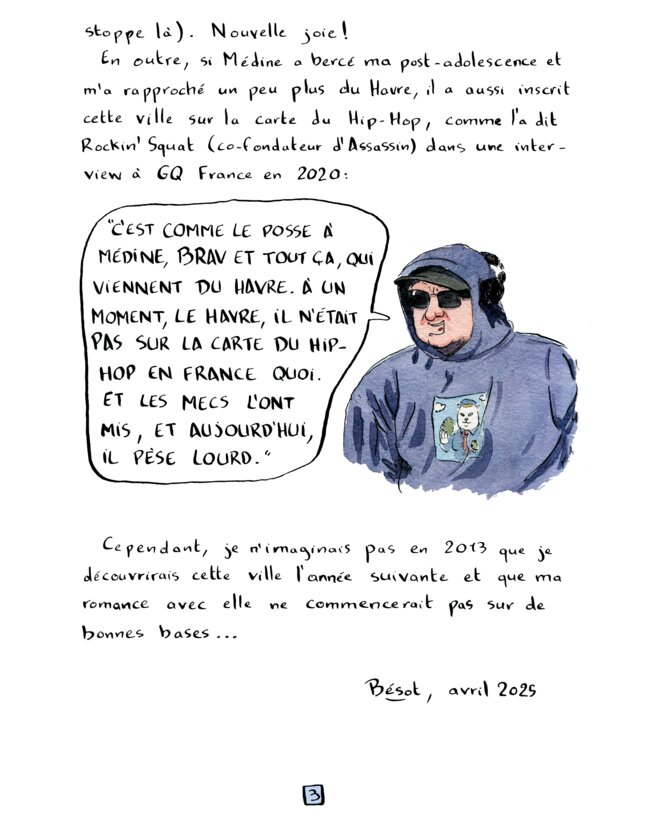 stoppe là). Nouvelle joie!
En outre, si Médine a bercé ma post-adolescence et
m'a rapproché un peu plus du Havre, il a aussi inscrit
cette ville sur la carte du Hip-Hop, comme l'a dit
Rockin' Squat (co-fondateur d'Assassin) dans une inter-
view à GQ France en 2020:
"C'EST COMME LE POSSE À
MÉDINE, BRAV ET TOUT ÇA, QUI
VIENNENT DU HAVRE. À UN
MOMENT, LE HAVRE, IL N'ÉTAIT
PAS SUR LA CARTE DU HIP-
HOP EN FRANCE QUOI.
ET LES MECS L'ONT
MIS, ET AUJOURD'HUI,
IL PÈSE LOURD."
Cependant, je n'imaginais pas en 2013 que je
découvrirais cette ville l'année suivante et que ma
romance avec elle ne commencerait pas sur de
bonnes bases...
Bésot, avril 2025
3